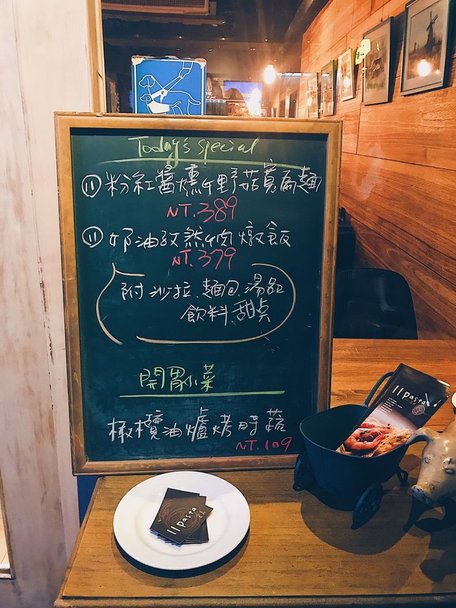 Today's special
⑪ 粉紅醬燻牛野菇寬扁麵
NT.389
⑪ 奶油紋然牛肉燉飯
NT.379
附 沙拉、麵包、湯品
飲料、甜点
開胃小菜
橄欖油爐烤時蔬
NT.109
11 pasta
11 pasta